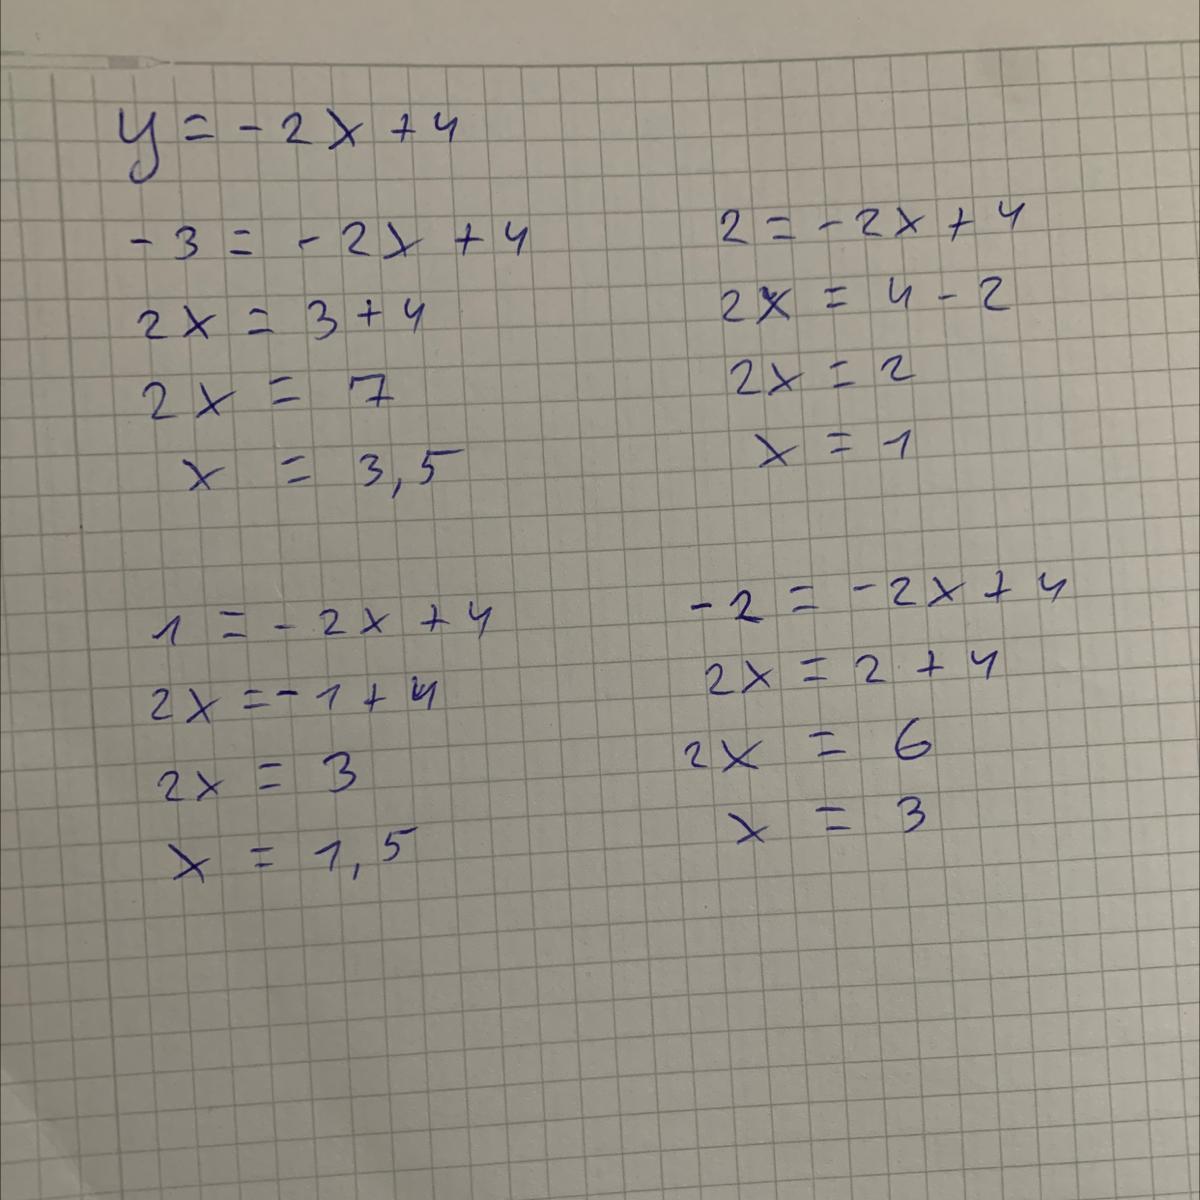 y = -2x + 4
-3 = -2x + 4
2x = 3 + 4
2x = 7
x = 3,5
2 = -2x + 4
2x = 4 - 2
2x = 2
x = 1
1 = -2x + 4
2x = -1 + 4
2x = 3
x = 1,5
-2 = -2x + 4
2x = 2 + 4
2x = 6
x = 3